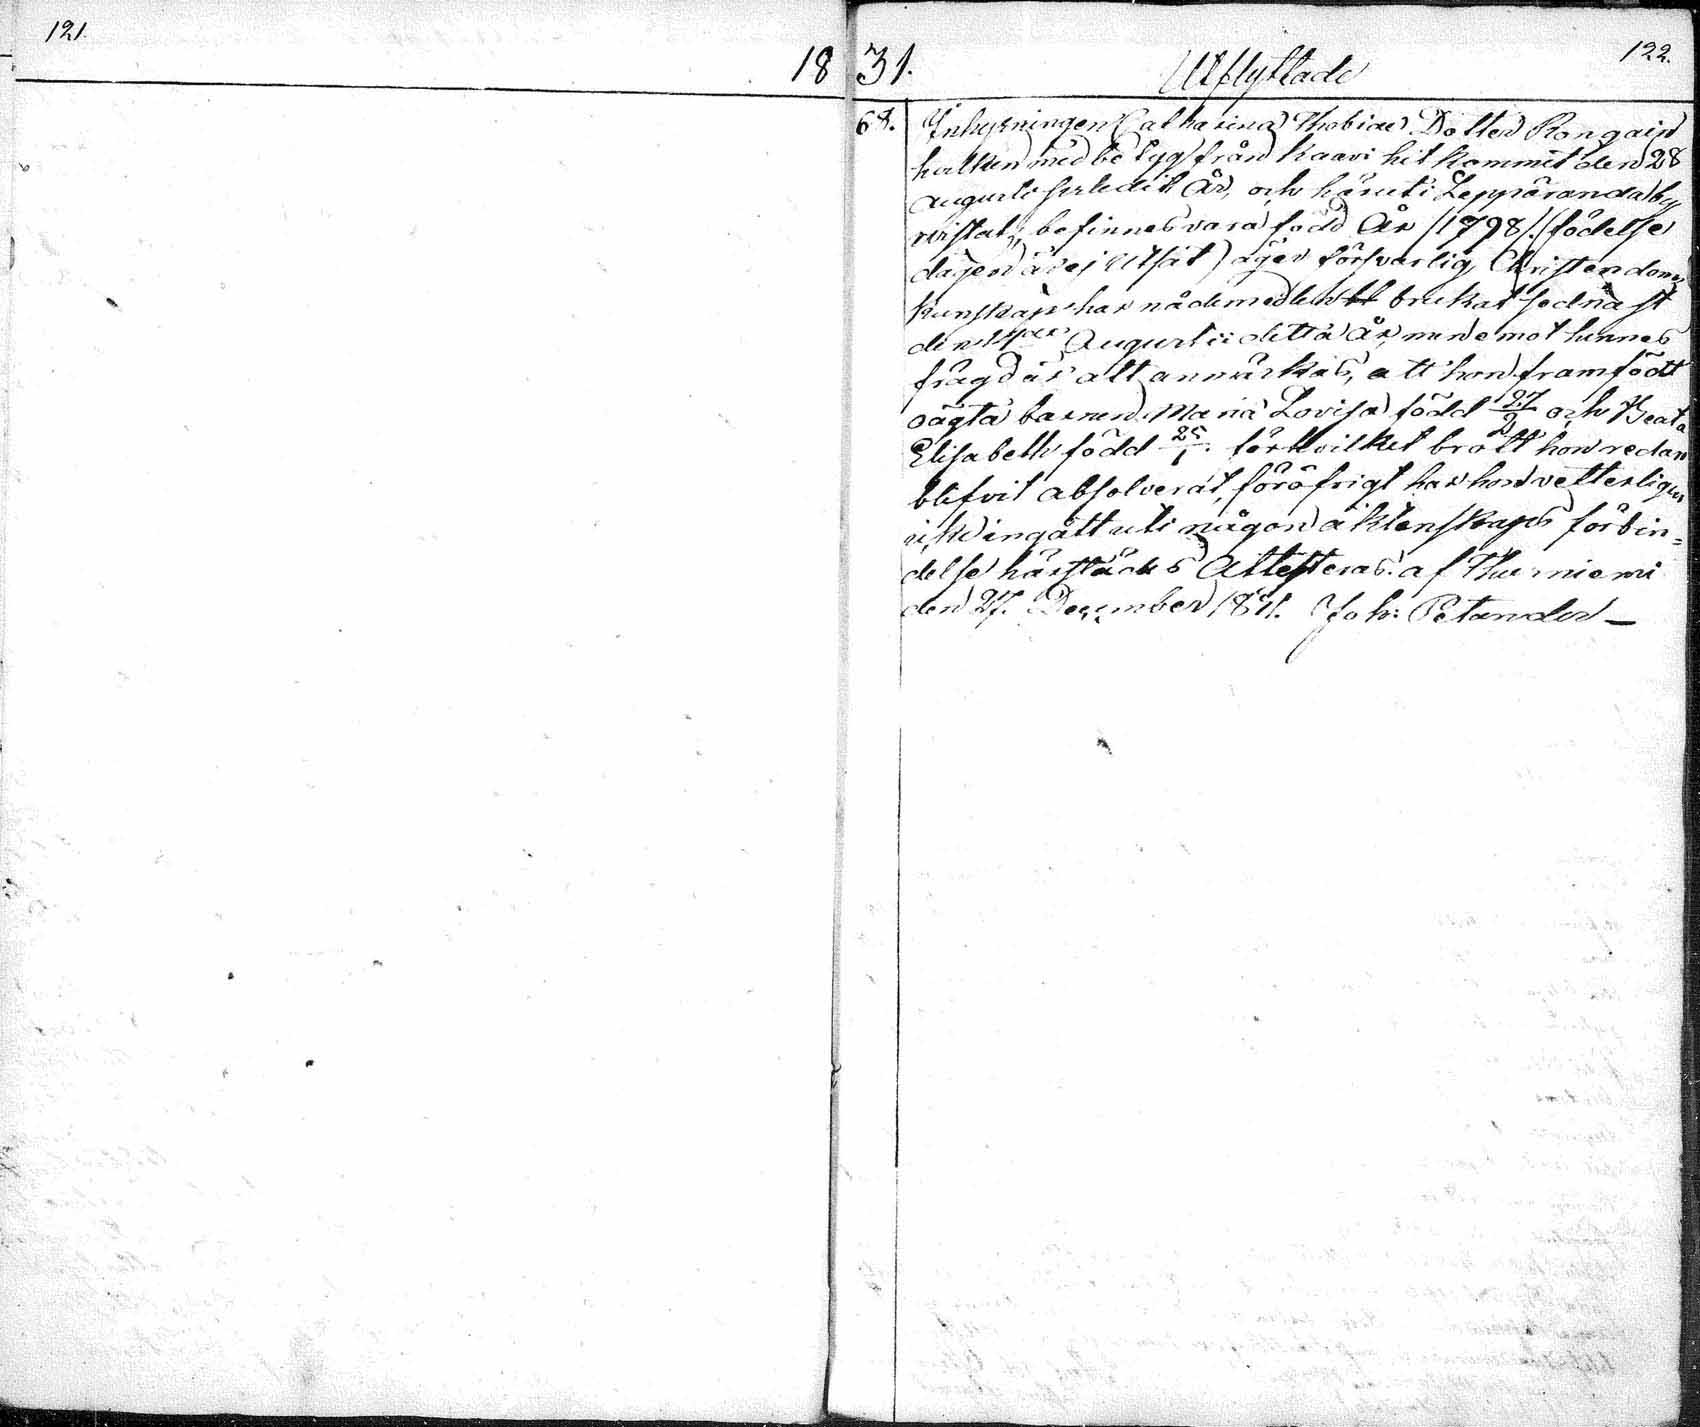 121.
1831.
Utflyttade
122.
68. Inhysningen Catharina Thobiae Dotter Rongain
hvilken med betyg från Kaavi hit kommit den 28
augusti förledit År, och häruti Leppäranda by
vistats, befinnes vara född År 1798. (födelse
dagen är ej utsat) äger försvarlig Christendoms
kunskap har nådemedlen brukat sednast
den Augusti detta År, men emot hennes
frägd är att anmärkas, att hon framfödt
oägta barnen Maria Lovisa född 27/2 och Beata
Elisabeth född 25/1. för hvilket brott hon redan
blifvit absolverat, föröfrigt har hon vetterligen
icke ingått uti någon äktenskaps förbin=
delse härstädes Attesteras af Thusniemi
den 27. December 1831. Joh: Petander —